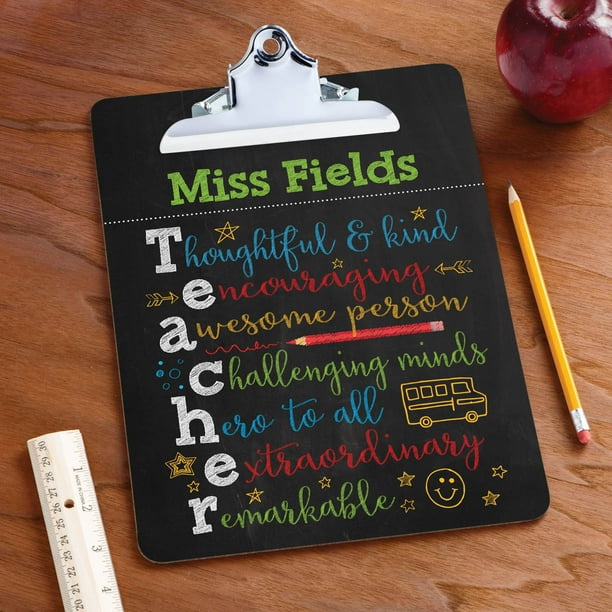 Miss Fields
Thoughtful & kind
encouraging
awesome person
challenging minds
hero to all
extraordinary
remarkable